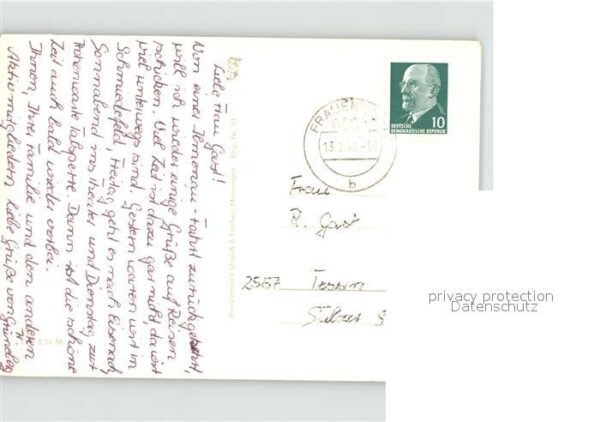 Liebe Frau Gast!
Von einer Ilmenau-Fahrt zurückgekehrt,
will ich wieder einige Grüße auf Reisen
schicken. Viel Zeit ist dazu gar nicht, da wir
viel unterwegs sind. Gestern waren wir in
Schmiedefeld, Freitag geht es nach Eisenach,
Sonnabend ins Theater und Dienstag zur
Hohenwarte Talsperre. Dann ist die schöne
Zeit auch bald wieder vorbei.
Ihnen, Ihrer Familie und den anderen
Aktivmitgliedern liebe Grüße von
Straub & Fischer, Meiningen
10
DEUTSCHE
DEMOKRATISCHE REPUBLIK
b
Frau
R. Gast
Tessin
privacy protection
Datenschutz